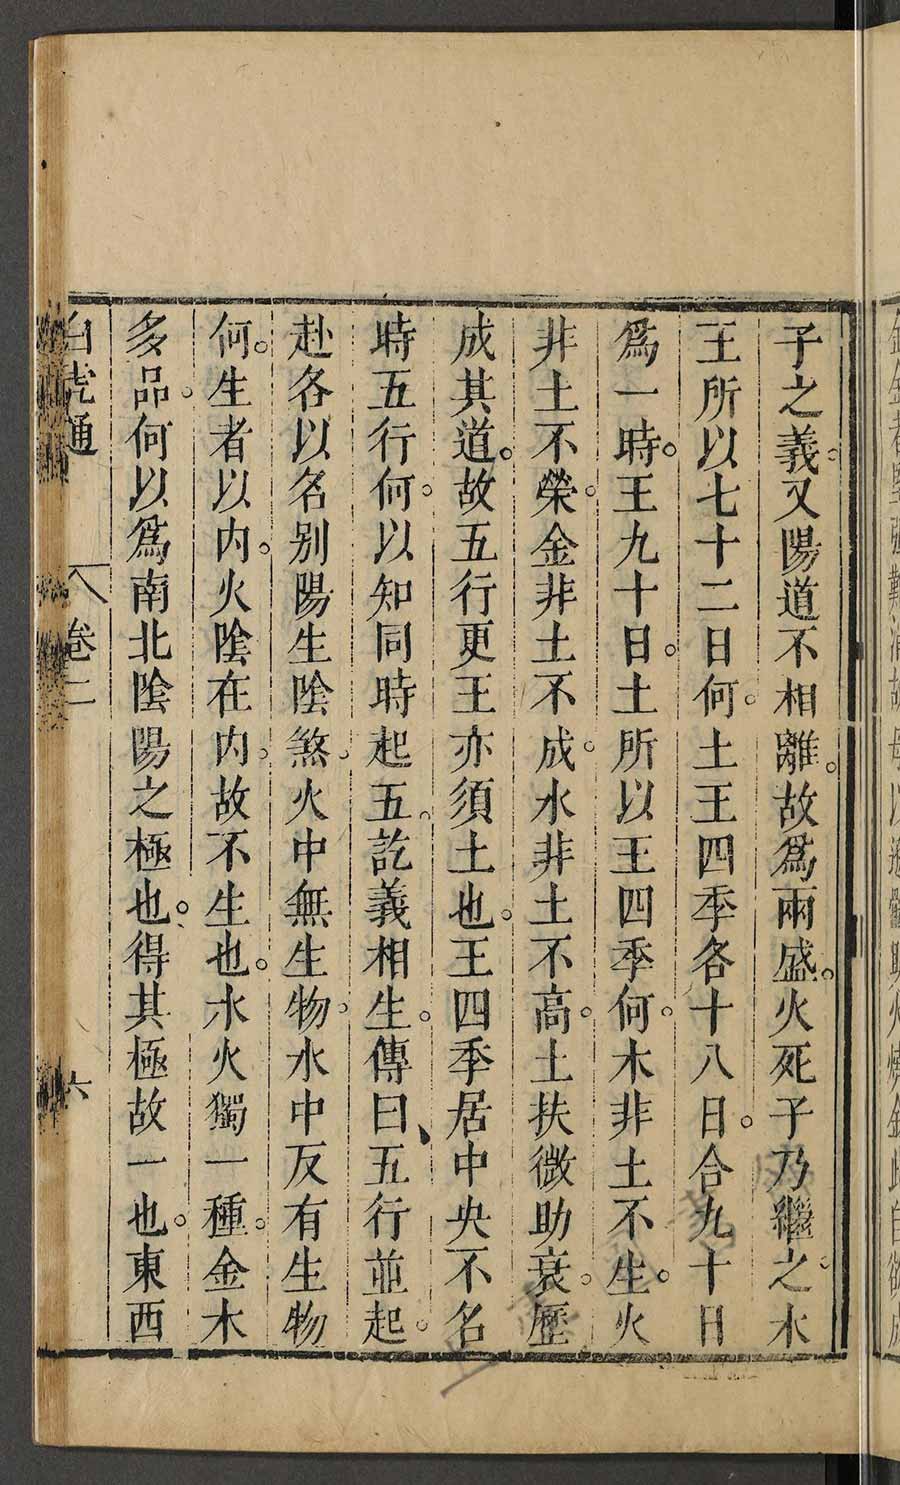 子之義。又陽道不相離。故爲兩盛。火死子乃繼之。木
王所以七十二日何。土王四季各十八日。合九十日
爲一時。王九十日。土所以王四季何。木非土不生。火
非土不榮。金非土不成。水非土不高。土扶微助衰。歷
成其道。故五行更王亦須土也。王四季居中央不名
時五行何。以知同時起五。訖義相生。傳曰五行並起。
赴各以名別陽生陰煞。火中無生物。水中反有生物
何。生者以內。火陰在內。故不生也。水火獨一種。金木
多品。何以爲南北陰陽之極也。得其極故一也。東西
白虎通 卷二 六